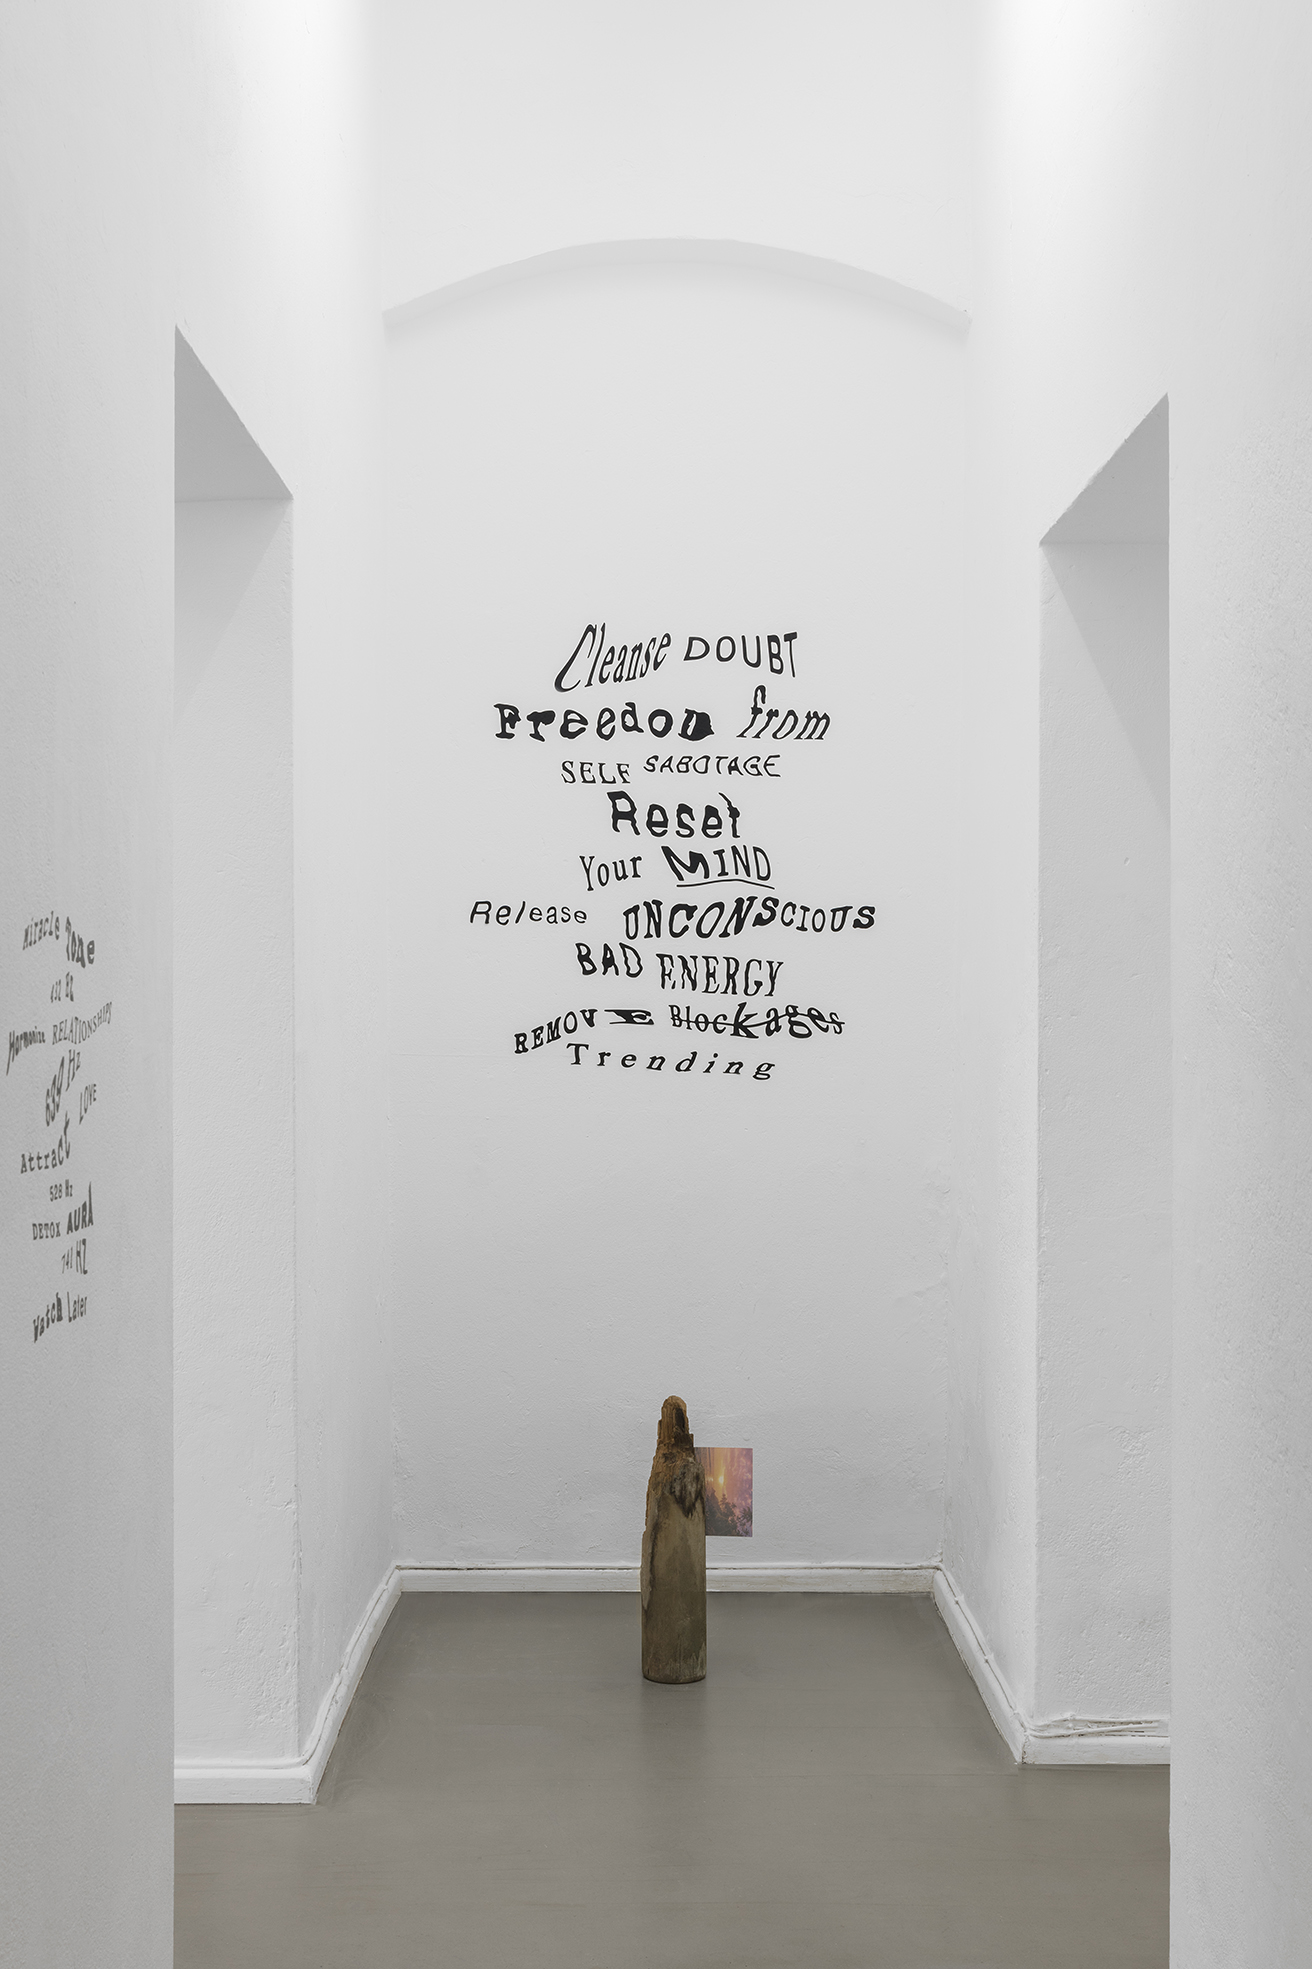 Cleanse DOUBT
Freedom from
SELF SABOTAGE
Reset
Your MIND
Release UNCONSCIOUS
BAD ENERGY
REMOVE Blockages
Trending
Miracle Tone
432 HZ
Harmonize RELATIONSHIPS
639 Hz
LOVE
Attract
528 Hz
DETOX AURA
741 HZ
Watch Later